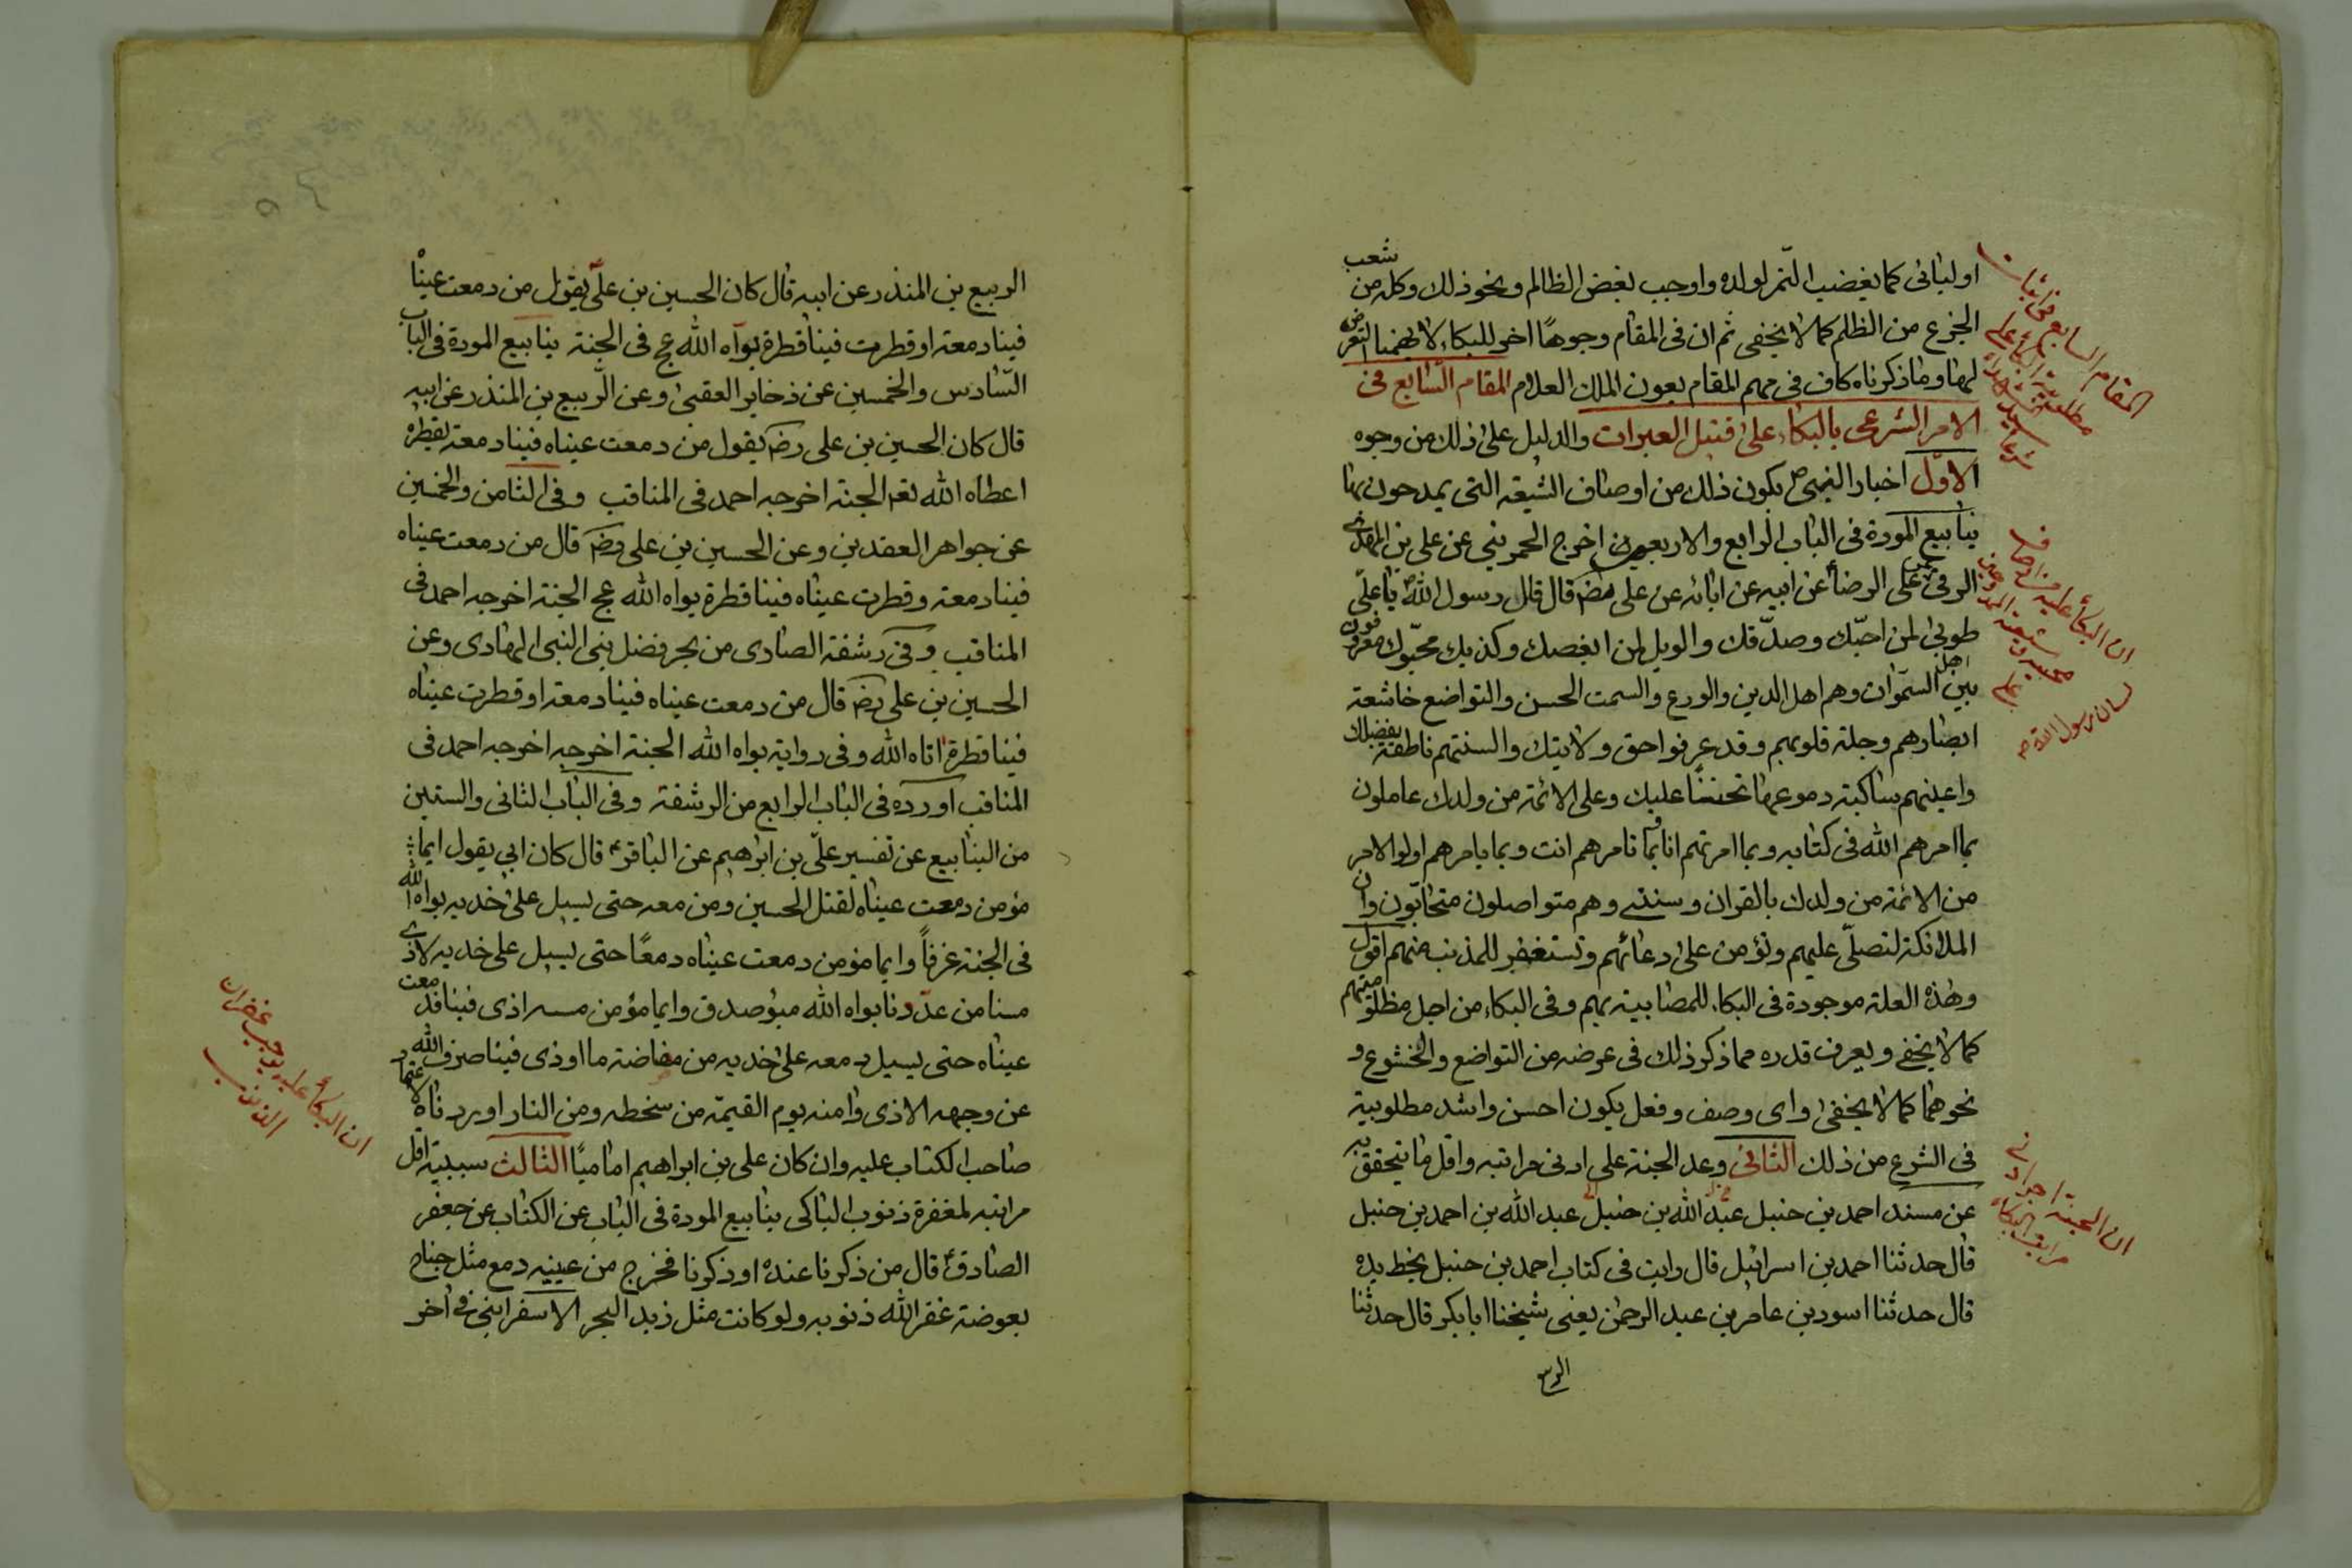 اوليائى كما يغضب النمر لولده واوجب بغض الظالم ونحو ذلك وكله من شعب
الجزع من الظلم كما لا يخفى ثم ان فى المقام وجوهًا اخر للبكاء لا يهمنا التعرض
لها وما ذكرناه كاف فى مهم المقام بعون الملك العلام المقام السابع فى
الامر الشرعى بالبكاء على قتيل العبرات والدليل على ذلك من وجوه
الاوّل اخبار النبى ص بكون ذلك من اوصاف الشيعة التى يمدحون بها
ينابيع المودة فى الباب الرابع والاربعين اخرج الحموينى عن على بن المهدى
الرقى عن على الرضا عن ابيه عن ابائه عن على رضه قال قال رسول الله يا علىّ
طوبى لمن احبّك وصدّقك والويل لمن ابغضك وكذبك محبّوك معروفون
بين اهل السموات وهم اهل الدين والورع والسمت الحسن والتواضع خاشعة
ابصارهم وجلة قلوبهم وقد عرفوا حق ولايتك والسنتهم ناطقة بفضلك
واعينهم ساكبة دموعها تحننًا عليك وعلى الائمة من ولدك عاملون
بما امرهم الله فى كتابه وبما امرتهم انا بما تامرهم انت وبما يامرهم اولوا الامر
من الائمة من ولدك بالقران وسنتى وهم متواصلون متحابّون وان
الملائكة لتصلّى عليهم وتؤمن على دعائهم وتستغفر للمذنب منهم اقول
وهذه العلة موجودة فى البكاء للمصابية بهم وفى البكاء من اجل مظلوميتهم
كما لا يخفى ويعرف قدره مما ذكر ذلك فى عرضه من التواضع والخشوع و
نحوهما كما لا يخفى واى وصف وفعل يكون احسن واشد مطلوبية
فى الشرع من ذلك الثانى وعد الجنة على ادنى مراتبه واقل ما يتحقق به
عن مسند احمد بن حنبل عبد الله بن حنبل عبد الله بن احمد بن حنبل
قال حدثنا احمد بن اسرائيل قال رايت فى كتاب احمد بن حنبل بخط يده
قال حدثنا اسود بن عامر بن عبد الرحمن يعنى شيخنا ابا بكر قال حدثنا
ان البكاء عليه من
لسان رسول الله ص
ان الجنة اجر ادنى
مراتب البكاء
الربيع بن المنذر عن ابيه قال كان الحسين بن علىّ يقول من دمعت عيناه
فينا دمعة او قطرت فينا قطرة بوّاه الله عج فى الجنة ينابيع المودة فى الباب
السّادس والخمسين عن ذخاير العقبى وعن الرّبيع بن المنذر عن ابيه
قال كان الحسين بن على رضه يقول من دمعت عيناه فينا دمعة بقطرة
اعطاه الله تعه الجنة اخرجه احمد فى المناقب وفى الثامن والخمسين
عن جواهر العقدين وعن الحسين بن على رضه قال من دمعت عيناه
فينا دمعة وقطرت عيناه فينا قطرة بواه الله عج الجنة اخرجه احمد فى
المناقب وفى رشفة الصادى من بحر فضل بنى النبى الهادى وعن
الحسين بن على رضه قال من دمعت عيناه فينا دمعة او قطرت عيناه
فينا قطرة اتاه الله وفى رواية بواه الله الجنة اخرجه اخرجه احمد فى
المناقب اورده فى الباب الرابع من الرشفة وفى الباب الثانى والستين
من الينابيع عن تفسير علىّ بن ابراهيم عن الباقر ع قال كان ابى يقول ايما
مؤمن دمعت عيناه لقتل الحسين ومن معه حتى يسيل على خديه بواه الله
فى الجنة غرفًا وايما مؤمن دمعت عيناه دمعًا حتى يسيل على خديه لاذى
مسنا من عدّونا بواه الله مبوّصدق وايما مؤمن مسه اذى فينا فدمعت
عيناه حتى يسيل دمعه على خديه من مضاضة ما اوذى فينا صرف الله
عن وجهه الاذى وامنه يوم القيمة من سخطه ومن النار اوردناه لاعتماد
صاحب الكتاب عليه وان كان على بن ابراهيم اماميًا الثالث سببية اقل
مراتبه لمغفرة ذنوب الباكى ينابيع المودة فى الباب عن الكتاب عن جعفر
الصادق ع قال من ذكرنا عنده او ذكرنا فخرج من عينيه دمع مثل جناح
بعوضة غفر الله ذنوبه ولو كانت مثل زبد البحر الاسفراينى فى آخر
ان البكاء عليه يوجب غفران
الذنوب